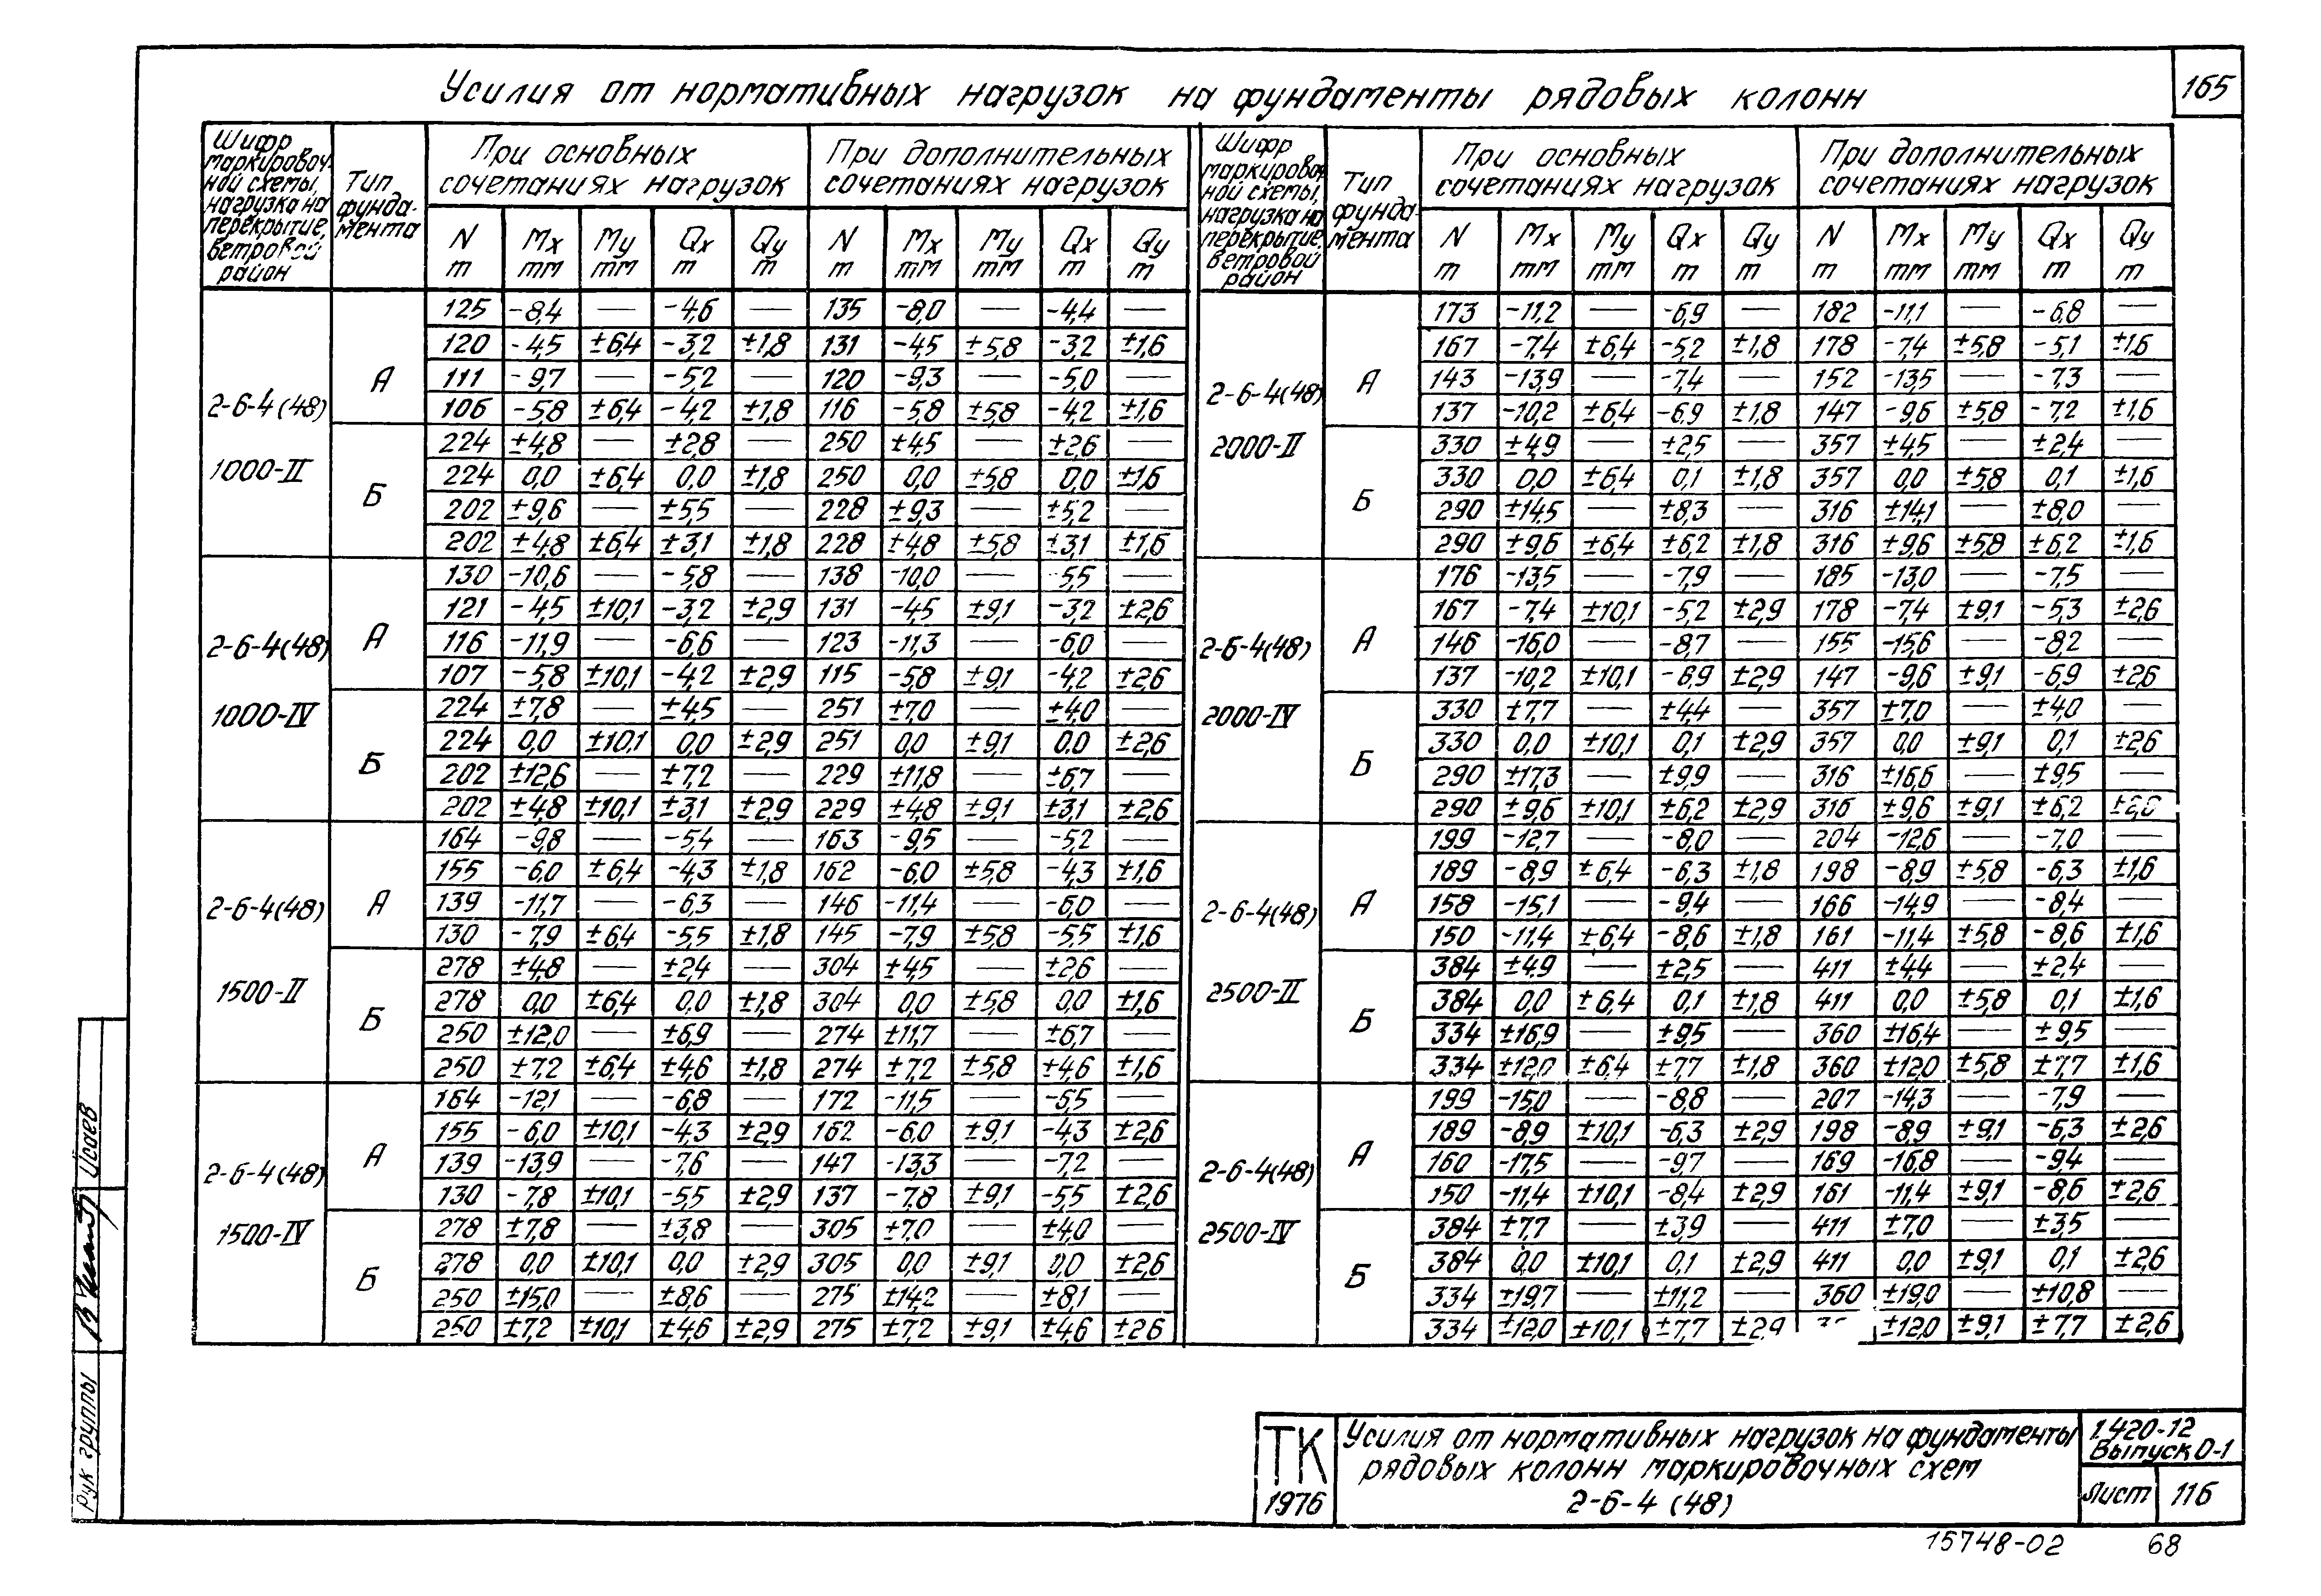 165
Усилия от нормативных нагрузок на фундаменты рядовых колонн
Шифр маркировоч-ной схемы, нагрузка на перекрытие, ветровой район | Тип фунда-мента | При основных сочетаниях нагрузок | При дополнительных сочетаниях нагрузок
N т | Mx тм | My тм | Qx т | Qy т | N т | Mx тм | My тм | Qx т | Qy т
2-6-4(48) 1000-II
А
125 -8,4 — -4,6 — 135 -8,0 — -4,4 —
120 -4,5 ±6,4 -3,2 ±1,8 131 -4,5 ±5,8 -3,2 ±1,6
111 -9,7 — -5,2 — 120 -9,3 — -5,0 —
106 -5,8 ±6,4 -4,2 ±1,8 116 -5,8 ±5,8 -4,2 ±1,6
Б
224 ±4,8 — ±2,8 — 250 ±4,5 — ±2,6 —
224 0,0 ±6,4 0,0 ±1,8 250 0,0 ±5,8 0,0 ±1,6
202 ±9,6 — ±5,5 — 228 ±9,3 — ±5,2 —
202 ±4,8 ±6,4 ±3,1 ±1,8 228 ±4,8 ±5,8 ±3,1 ±1,6
2-6-4(48) 1000-IV
А
130 -10,6 — -5,8 — 138 -10,0 — -5,5 —
121 -4,5 ±10,1 -3,2 ±2,9 131 -4,5 ±9,1 -3,2 ±2,6
116 -11,9 — -6,6 — 123 -11,3 — -6,0 —
107 -5,8 ±10,1 -4,2 ±2,9 115 -5,8 ±9,1 -4,2 ±2,6
Б
224 ±7,8 — ±4,5 — 251 ±7,0 — ±4,0 —
224 0,0 ±10,1 0,0 ±2,9 251 0,0 ±9,1 0,0 ±2,6
202 ±12,6 — ±7,2 — 229 ±11,8 — ±6,7 —
202 ±4,8 ±10,1 ±3,1 ±2,9 229 ±4,8 ±9,1 ±3,1 ±2,6
2-6-4(48) 1500-II
А
164 -9,8 — -5,4 — 163 -9,5 — -5,2 —
155 -6,0 ±6,4 -4,3 ±1,8 162 -6,0 ±5,8 -4,3 ±1,6
139 -11,7 — -6,3 — 146 -11,4 — -6,0 —
130 -7,9 ±6,4 -5,5 ±1,8 145 -7,9 ±5,8 -5,5 ±1,6
Б
278 ±4,8 — ±2,4 — 304 ±4,5 — ±2,6 —
278 0,0 ±6,4 0,0 ±1,8 304 0,0 ±5,8 0,0 ±1,6
250 ±12,0 — ±6,9 — 274 ±11,7 — ±6,7 —
250 ±7,2 ±6,4 ±4,6 ±1,8 274 ±7,2 ±5,8 ±4,6 ±1,6
2-6-4(48) 1500-IV
А
164 -12,1 — -6,8 — 172 -11,5 — -5,5 —
155 -6,0 ±10,1 -4,3 ±2,9 162 -6,0 ±9,1 -4,3 ±2,6
139 -13,9 — -7,6 — 147 -13,3 — -7,2 —
130 -7,8 ±10,1 -5,5 ±2,9 137 -7,8 ±9,1 -5,5 ±2,6
Б
278 ±7,8 — ±3,8 — 305 ±7,0 — ±4,0 —
278 0,0 ±10,1 0,0 ±2,9 305 0,0 ±9,1 0,0 ±2,6
250 ±15,0 — ±8,6 — 275 ±14,2 — ±8,1 —
250 ±7,2 ±10,1 ±4,6 ±2,9 275 ±7,2 ±9,1 ±4,6 ±2,6
Шифр маркировоч ной схемы, нагрузка на перекрытие, ветровой район | Тип фунда-мента | При основных сочетаниях нагрузок | При дополнительных сочетаниях нагрузок
N т | Mx тм | My тм | Qx т | Qy т | N т | Mx тм | My тм | Qx т | Qy т
2-6-4(48) 2000-II
А
173 -11,2 — -6,9 — 182 -11,1 — -6,8 —
167 -7,4 ±6,4 -5,2 ±1,8 178 -7,4 ±5,8 -5,1 ±1,6
143 -13,9 — -7,4 — 152 -13,5 — -7,3 —
137 -10,2 ±6,4 -6,9 ±1,8 147 -9,6 ±5,8 -7,2 ±1,6
Б
330 ±4,9 — ±2,5 — 357 ±4,5 — ±2,4 —
330 0,0 ±6,4 0,1 ±1,8 357 0,0 ±5,8 0,1 ±1,6
290 ±14,5 — ±8,3 — 316 ±14,1 — ±8,0 —
290 ±9,6 ±6,4 ±6,2 ±1,8 316 ±9,6 ±5,8 ±6,2 ±1,6
2-6-4(48) 2000-IV
А
176 -13,5 — -7,9 — 185 -13,0 — -7,5 —
167 -7,4 ±10,1 -5,2 ±2,9 178 -7,4 ±9,1 -5,3 ±2,6
146 -16,0 — -8,7 — 155 -15,6 — -8,2 —
137 -10,2 ±10,1 -6,9 ±2,9 147 -9,6 ±9,1 -6,9 ±2,6
Б
330 ±7,7 — ±4,4 — 357 ±7,0 — ±4,0 —
330 0,0 ±10,1 0,1 ±2,9 357 0,0 ±9,1 0,1 ±2,6
290 ±17,3 — ±9,9 — 316 ±16,6 — ±9,5 —
290 ±9,6 ±10,1 ±6,2 ±2,9 316 ±9,6 ±9,1 ±6,2
2-6-4(48) 2500-II
А
199 -12,7 — -8,0 — 204 -12,6 — -7,0 —
189 -8,9 ±6,4 -6,3 ±1,8 198 -8,9 ±5,8 -6,3 ±1,6
158 -15,1 — -9,4 — 166 -14,9 — -8,4 —
150 -11,4 ±6,4 -8,6 ±1,8 161 -11,4 ±5,8 -8,6 ±1,6
Б
384 ±4,9 — ±2,5 — 411 ±4,4 — ±2,4 —
384 0,0 ±6,4 0,1 ±1,8 411 0,0 ±5,8 0,1 ±1,6
334 ±16,9 — ±9,5 — 360 ±16,4 — ±9,5 —
334 ±12,0 ±6,4 ±7,7 ±1,8 360 ±12,0 ±5,8 ±7,7 ±1,6
2-6-4(48) 2500-IV
А
199 -15,0 — -8,8 — 207 -14,3 — -7,9 —
189 -8,9 ±10,1 -6,3 ±2,9 198 -8,9 ±9,1 -6,3 ±2,6
160 -17,5 — -9,7 — 169 -16,8 — -9,4 —
150 -11,4 ±10,1 -8,4 ±2,9 161 -11,4 ±9,1 -8,6 ±2,6
Б
384 ±7,7 — ±3,9 — 411 ±7,0 — ±3,5 —
384 0,0 ±10,1 0,1 ±2,9 411 0,0 ±9,1 0,1 ±2,6
334 ±19,7 — ±11,2 — 360 ±19,0 — ±10,8 —
334 ±12,0 ±10,1 ±7,7 ±2,9 ±12,0 ±9,1 ±7,7 ±2,6
Рук группы Исаев
ТК
1976
Усилия от нормативных нагрузок на фундаменты
рядовых колонн маркировочных схем
2-6-4 (48)
1.420-12
Выпуск 0-1
Лист 116
15748-02 68